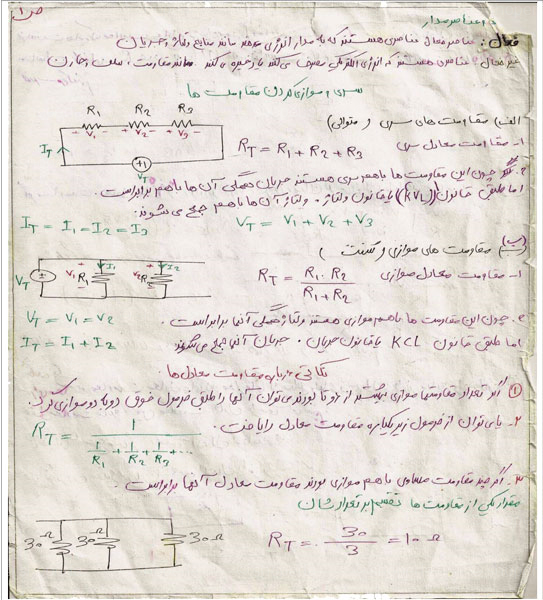 ص ۱
عناصر مدار
فعال: عناصر فعال عناصری هستند که به مدار انرژی میدهند مانند منابع ولتاژ و جریان
غیر فعال: عناصری هستند که انرژی الکتریکی مصرف می کنند یا ذخیره می کنند مانند مقاومت، سلف و خازن
سری و موازی کردن مقاومت ها
الف) مقاومت های سری و متوالی)
R1 R2 R3
+ V1 - + V2 - + V3 -
IT
VT
۱- مقاومت معادل سری RT = R1 + R2 + R3
۲- چون این مقاومت ها باهم سری هستند جریان همگی آن ها باهم برابر است.
اما طبق قانون (KVL) یا قانون ولتاژ، ولتاژ آن ها باهم جمع می شوند:
IT = I1 = I2 = I3 VT = V1 + V2 + V3
ب) مقاومت های موازی و
VT V1 R1 I1 V2 R2 I2
۱- مقاومت معادل موازی RT = R1 . R2 / R1 + R2
۲- چون این مقاومت ها باهم موازی هستند ولتاژ همگی آنها برابر است.
VT = V1 = V2
اما طبق قانون KCL یا قانون جریان، جریان آنها جمع می شوند
IT = I1 + I2
نکاتی درباره مقاومت معادل ها
① اگر تعداد مقاومتهای موازی بیشتر از دو تا بودند می توان آنها را طبق فرمول فوق دو به دو موازی کرد.
۲- یا می توان از فرمول زیر یکباره مقاومت معادل را یافت.
RT = 1 / 1/R1 + 1/R2 + 1/R3 + ...
۳- اگر چند مقاومت مساوی باهم موازی بودند مقاومت معادل آنها برابر است.
مقدار یکی از مقاومت ها تقسیم بر تعدادشان
۳۰Ω ۳۰Ω ۳۰Ω
RT = ۳۰ / ۳ = ۱۰ Ω